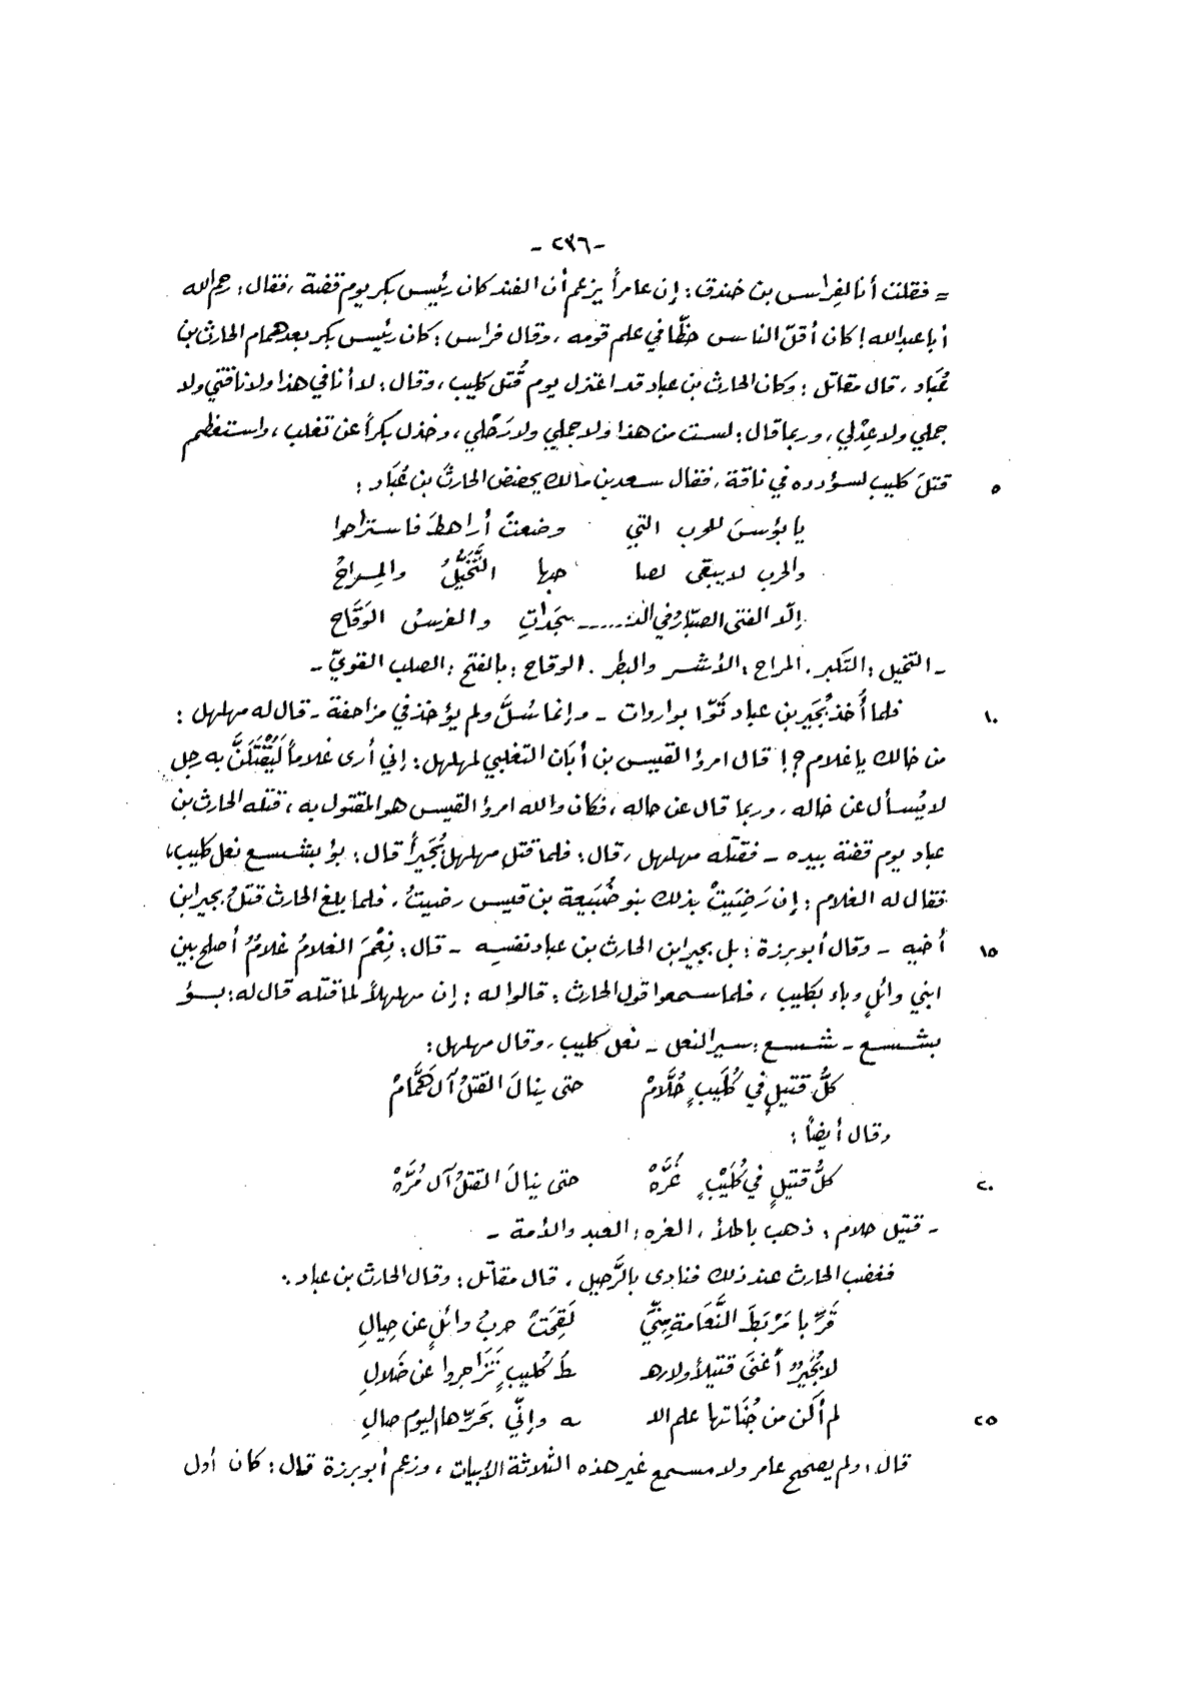 - ٢٣٦ -
= فقلت أنا لفِراس بن خندق: إن عامراً يزعم أن الفند كان رئيس بكر يوم قضة، فقال: رحم الله
أبا عبدالله! كان أقلّ الناس حظّاً في علم قومه، وقال فراس: كان رئيس بكر بعد همام الحارث بن
عُبَاد، قال مقاتل: وكان الحارث بن عباد قد اعتزل يوم قُتل كليب، وقال: لا أنا في هذا ولا ناقتي ولا
جملي ولا عِدْلي، وربما قال: لست من هذا ولا جملي ولا رَحْلي، وخذل بكراً عن تغلب، واستعظم
٥ قتلَ كليب لسؤدده في ناقة، فقال سعد بن مالك يحضض الحارثَ بن عُبَاد:
يا بؤسَ للحرب التي وضعتْ أراهطَ فاستراحوا
والحرب لا يبقى لصا حبها التَّخَيُّلُ والمِراحُ
إلّا الفتى الصبّارُ في النـ ..... ـجَداتِ والفرسُ الوَقَاح
- التخيل: التكبر. المراح: الأشر والبطر. الوقاح: بالفتح: الصلب القويّ -
١٠ فلما أُخذ بُجَير بن عباد تَوّا بواردات - وإنما سُلَّ ولم يؤخذ في مزاحفة - قال له مهلهل:
من خالك يا غلام؟! قال امرؤ القيس بن أبَان التغلبي لمهلهل: إني أرى غلاماً لَيُقْتَلَنَّ به رجل
لا يُسأل عن خاله، وربما قال عن حاله، فكان والله امرؤ القيس هو المقتول به، قتله الحارث بن
عباد يوم قضة بيده - فقتله مهلهل، قال: فلما قتل مهلهل بُجَيراً قال: بؤ بشسع نعل كليب،
فقال له الغلام: إن رَضِيَتْ بذلك بنو ضُبَيعة بن قيس رضيتُ، فلما بلغ الحارث قتلُ بجير ابن
١٥ أخيه - وقال أبو برزة: بل بجير ابن الحارث بن عباد نفسِه - قال: نِعْمَ الغلامُ غلامٌ أصلح بين
ابني وائلٍ وباء بكليب، فلما سمعوا قول الحارث: قالوا له: إن مهلهلاً لما قتله قال له: بـــؤ
بشسع - شسع: سير النعل - نعل كليب، وقال مهلهل:
كلُّ قتيلٍ في كُلَيبٍ حُلَّامْ حتى ينالَ القتلُ آل هَمَّامْ
وقال أيضاً:
٢٠ كلُّ قتيلٍ في كُلَيْبٍ غُرَّهْ حتى ينالَ القتلُ آل مُرَّهْ
- قتيل حلام: ذهب باطلاً، الغره: العبد والأمة -
فغضب الحارث عند ذلك فنادى بالرَّحيل، قال مقاتل: وقال الحارث بن عباد:
قَرِّبا مَرْبَطَ النَّعَامةِ مِنّي لَقِحَتْ حربُ وائلٍ عن حِيالِ
لا بُجَيرٌ أغنى قتيلاً ولا رهـ ـطُ كُليبٍ تَزَاجروا عن ضَلالِ
٢٥ لم أكن من جُنَاتها علم اللـ ـه وإنّي بَحَرِّها اليوم صالِ
قال: ولم يصحح عامر ولا مسمع غير هذه الثلاثة الأبيات، وزعم أبو برزة قال: كان أول